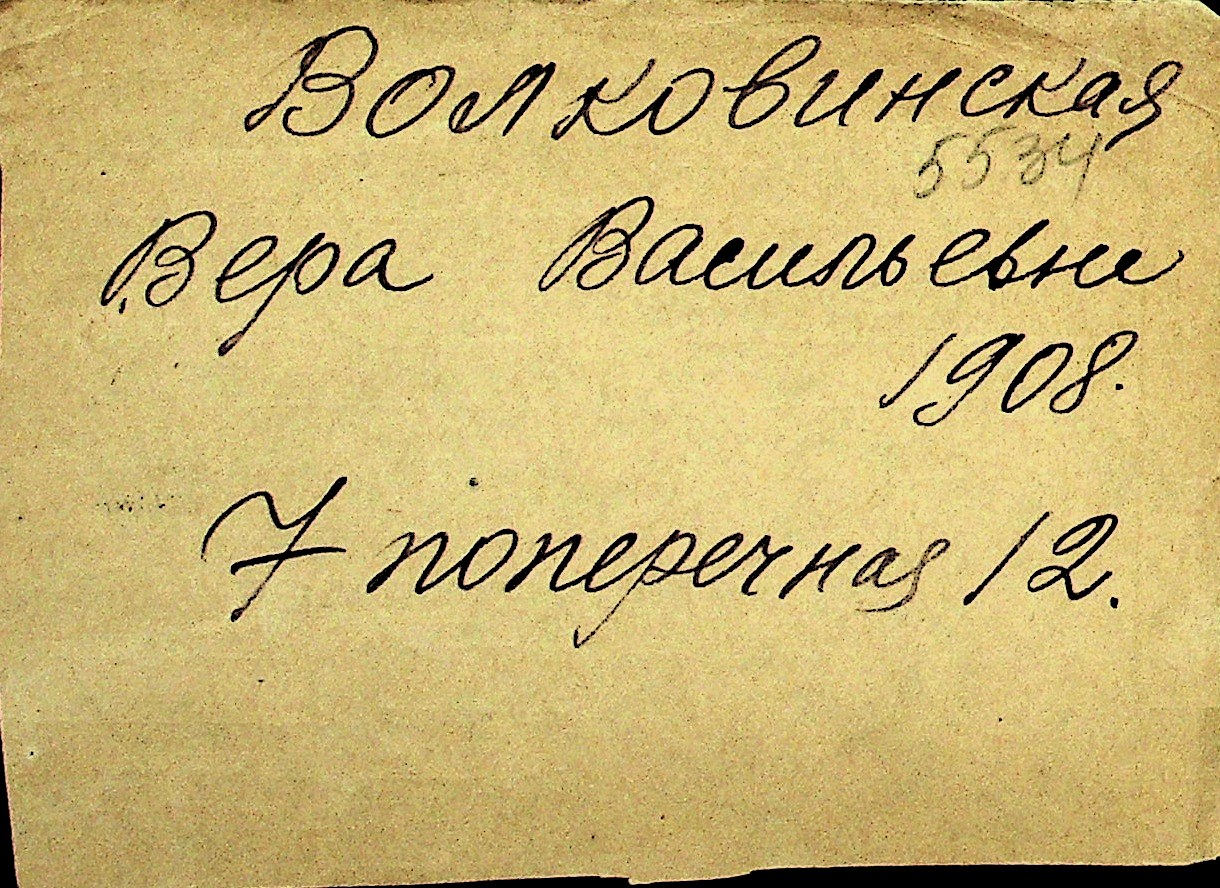 Волковинская
5534
Вера Васильевна
1908.
7 поперечная 12.